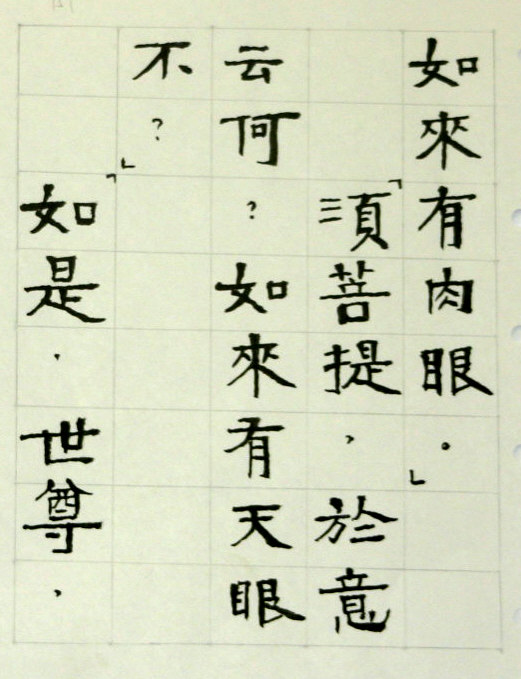 如來有肉眼。」
「須菩提,於意
云何?如來有天眼
不?」
「如是,世尊,